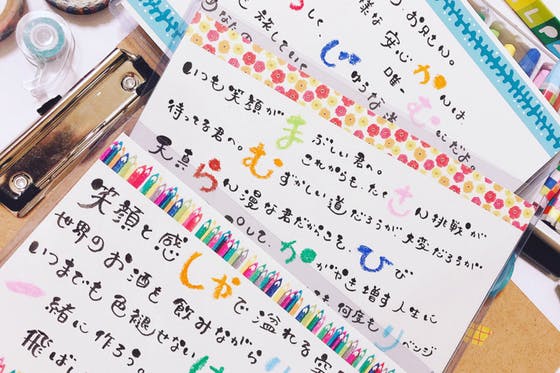 お兄さん。
様な安心
唯一
じ
かんは
むにだよ。
いつも笑顔がまぶしい君へ。
これからも、たくさん挑戦が
待ってる君へ。
むずかしい道だろうが、大変だろうが、
天真らん漫な君だからこそ、
ひび
して、かがやき増す人生に
何度もリベンジ
笑顔と感しかで溢れる
世界のお酒を飲みながら
いつまでも色褪せない
緒に作ろう。
飛ばし